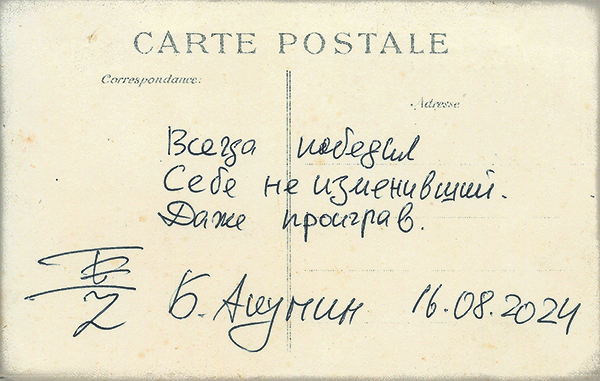 CARTE POSTALE
Correspondance:
Adresse
Всегда победил
Себе не изменивший.
Даже проиграв.
Б. Акунин 16.08.2024